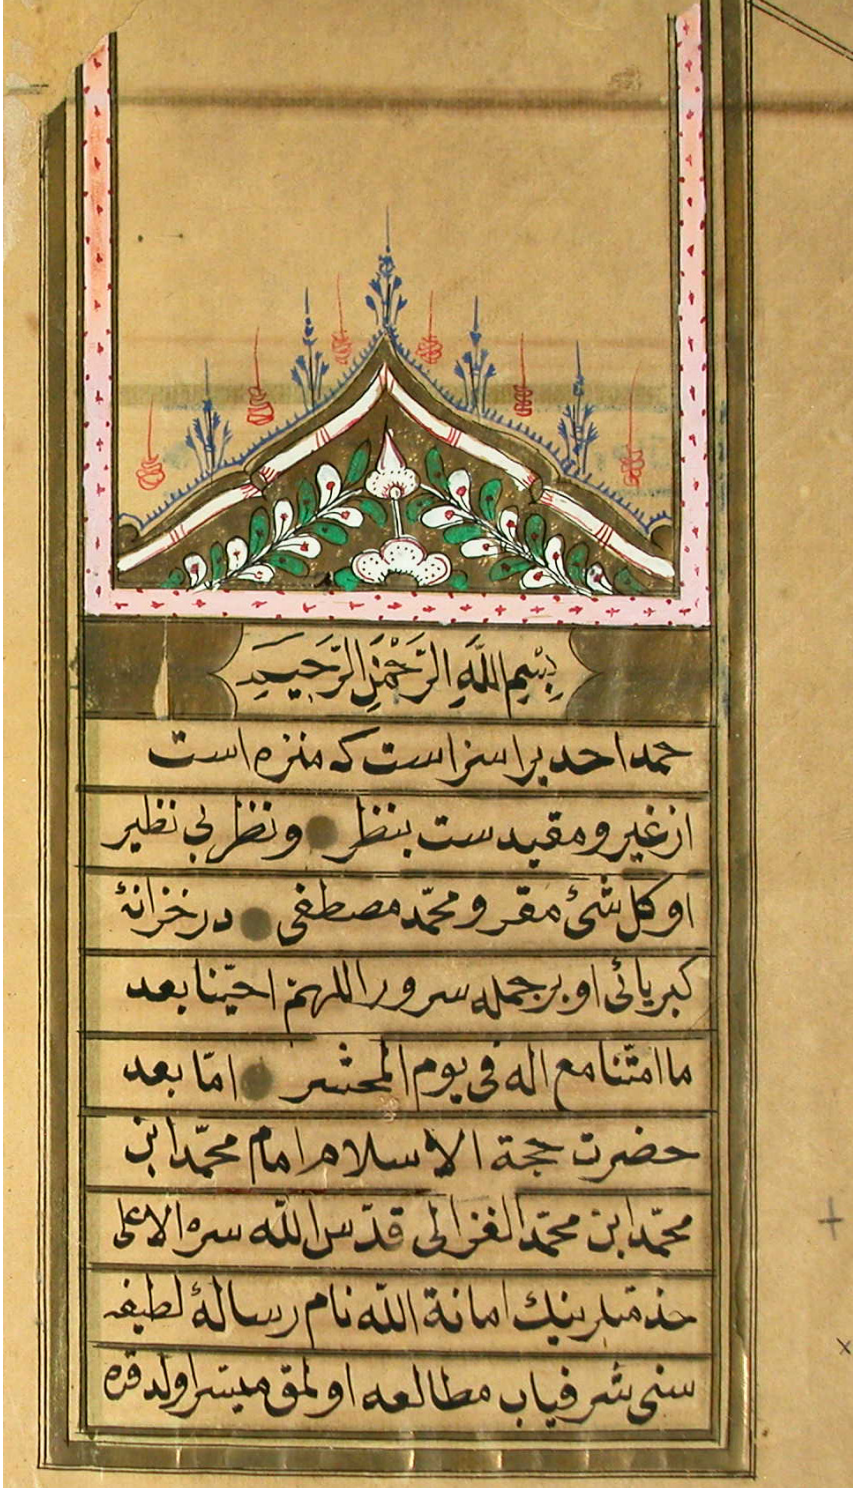 بِسْمِ اللَّهِ الرَّحْمٰنِ الرَّحِيمِ
حمد احد برا سزاست كه منزه است
از غیر و مقیدست بنظر و نظر بی نظیر
او کل شئ مقر و محمّد مصطفی در خزانهٔ
کبریائی او بر جمله سرور اللهم احیّنا بعد
ما امتّنا مع اله فی یوم المحشر امّا بعد
حضرت حجة الاسلام امام محمّد ابن
محمّد ابن محمّد الغزالی قدّس الله سره الاعلی
امانة الله نام رسالهٔ لطیفه
سنی شرفیاب مطالعه اولمق میسر اولد قره